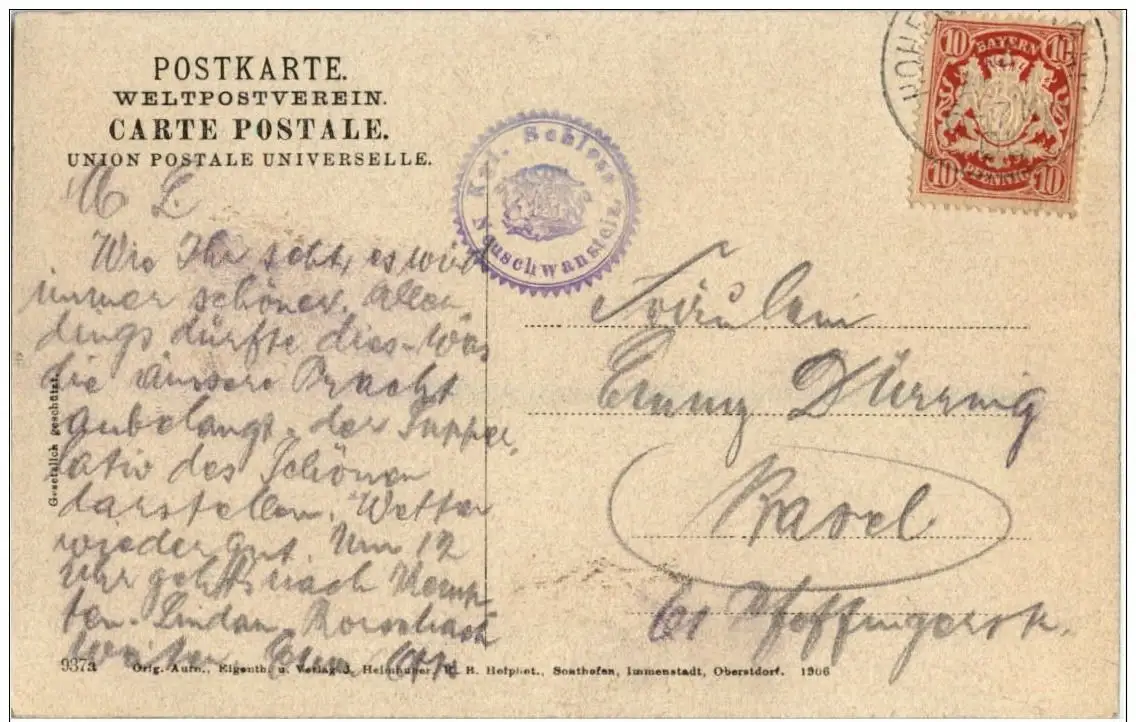 POSTKARTE.
WELTPOSTVEREIN.
CARTE POSTALE.
UNION POSTALE UNIVERSELLE.
Kgl. Schloss
Neuschwanstein.
10 BAYERN 10
10 PFENNIG 10
M L
Wie Ihr seht, es wird
immer schöner. Aller
dings dürfte dies - was
die äussere Pracht
anbelangt - der Supper
lativ des Schönen
darstellen. Wetter
wieder gut. Um 12
Uhr geht's nach Kemp
ten - Lindau, Rorschach
weiter
Fräulein
Emmy Dürring
Basel
61 Pfeffingerstr.
Gesetzlich geschützt.
937a Orig.-Aufn., Eigenth. u. Verlag J. Heimhuber, K. B. Hofphot., Sonthofen, Immenstadt, Oberstdorf. 1906